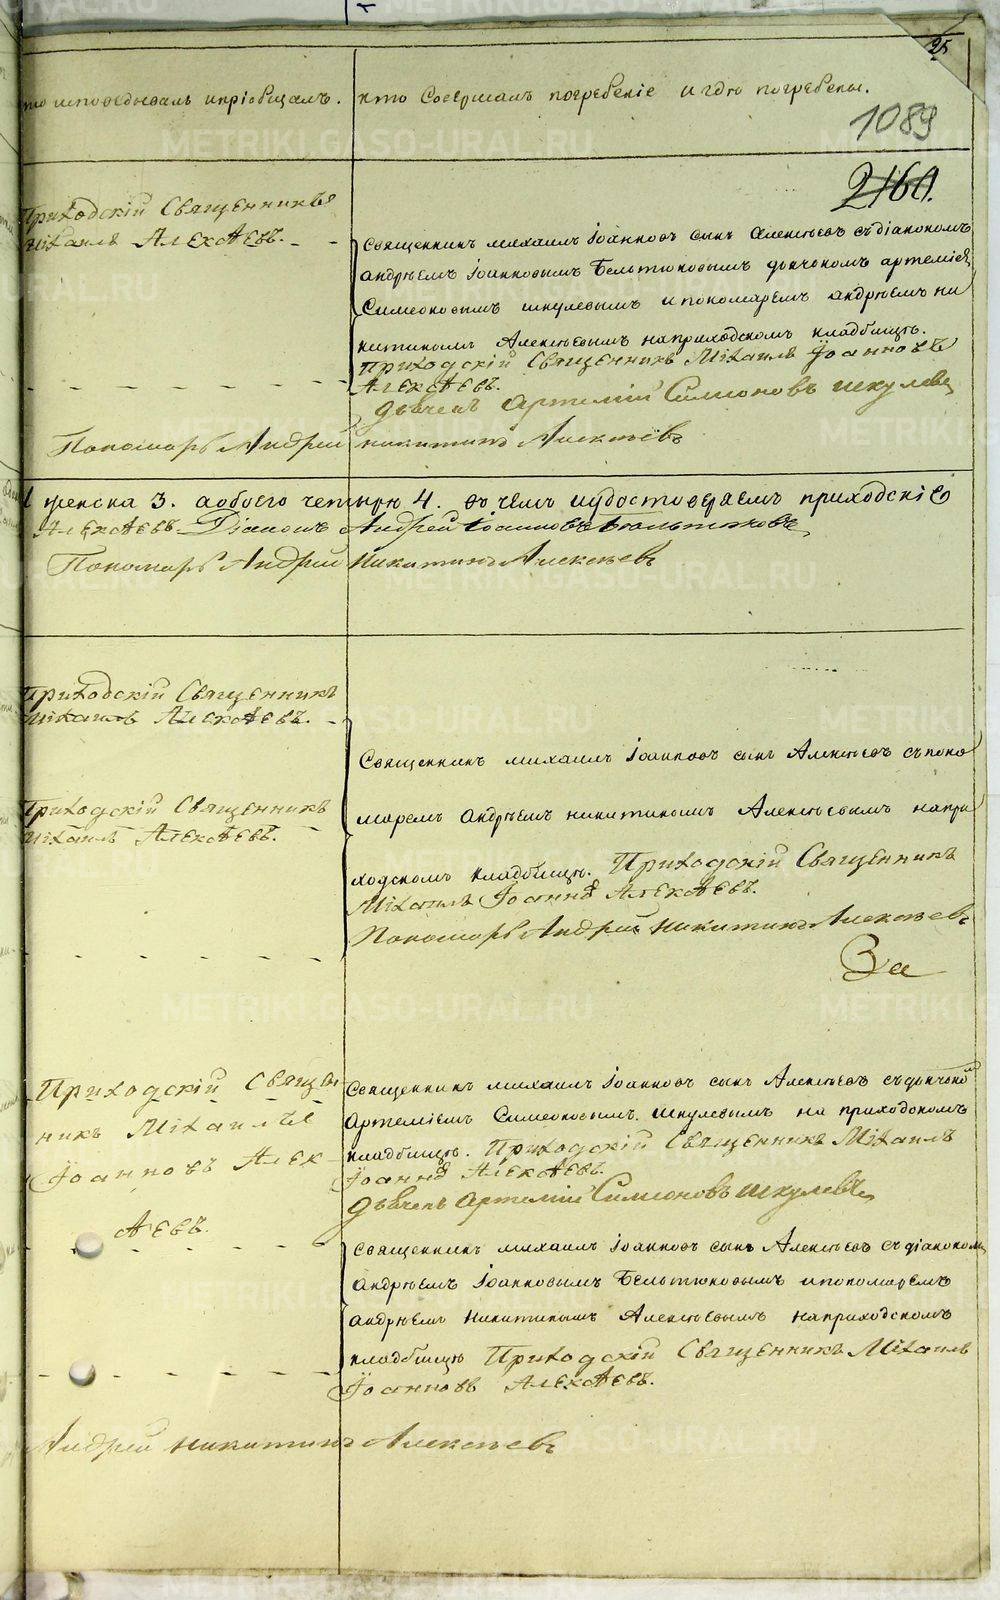 25
кто исповѣдывалъ и пріобщалъ.
кто Совершалъ погребеніе и гдѣ погребены.
1089
2160.
Приходскій Священникъ
Михаилъ Алексѣевъ.
Священникъ михаилъ Іоанновъ сынъ Алексѣевъ съ діакономъ
андрѣемъ Іоанновымъ Бельтюковымъ дьячкомъ артеміемъ
Симеоновымъ шкулевымъ и пономаремъ андрѣемъ ни
китинымъ Алексѣевымъ на приходскомъ кладбищѣ.
Приходскій Священникъ Михаилъ Іоанновъ
Алексѣевъ.
дьячекъ Артемій Симионовъ шкулевъ
Пономарь Андрей никитинъ Алексѣевъ
женска 3. а обоего четыре 4. въ чемъ и удостоверяемъ приходскій
Алексѣевъ Діаконъ Андрей Іоанновъ Бельтюковъ
Пономарь Андрей Никитинъ Алексѣевъ
Приходскій Священникъ
Михаилъ Алексѣевъ.
Приходскій Священникъ
Михаилъ Алексѣевъ.
Священникъ михаилъ Іоанновъ сынъ Алексѣевъ съ поно
маремъ андрѣемъ никитинымъ Алексѣевымъ на при
ходскомъ кладбищѣ. Приходскій Священникъ
Михаилъ Іоанновъ Алексѣевъ.
Пономарь Андрей Никитинъ Алексѣевъ
За
Приходскій Священ
никъ Михаилъ
Іоанновъ Алек
сѣевъ.
Священникъ михаилъ Іоанновъ сынъ Алексѣевъ съ дьячкомъ
Артеміемъ Симеоновымъ шкулевымъ на приходскомъ
кладбищѣ. Приходскій Священникъ Михаилъ
Іоанновъ Алексѣевъ.
дьячекъ Артемій Симионовъ шкулевъ
Священникъ михаилъ Іоанновъ сынъ Алексѣевъ съ діакономъ
андрѣемъ Іоанновымъ Бельтюковымъ и пономаремъ
андрѣемъ никитинымъ Алексѣевымъ на приходскомъ
кладбищѣ Приходскій Священникъ Михаилъ
Іоанновъ Алексѣевъ.
Андрей никитинъ Алексѣевъ
METRIKI.GASO-URAL.RU